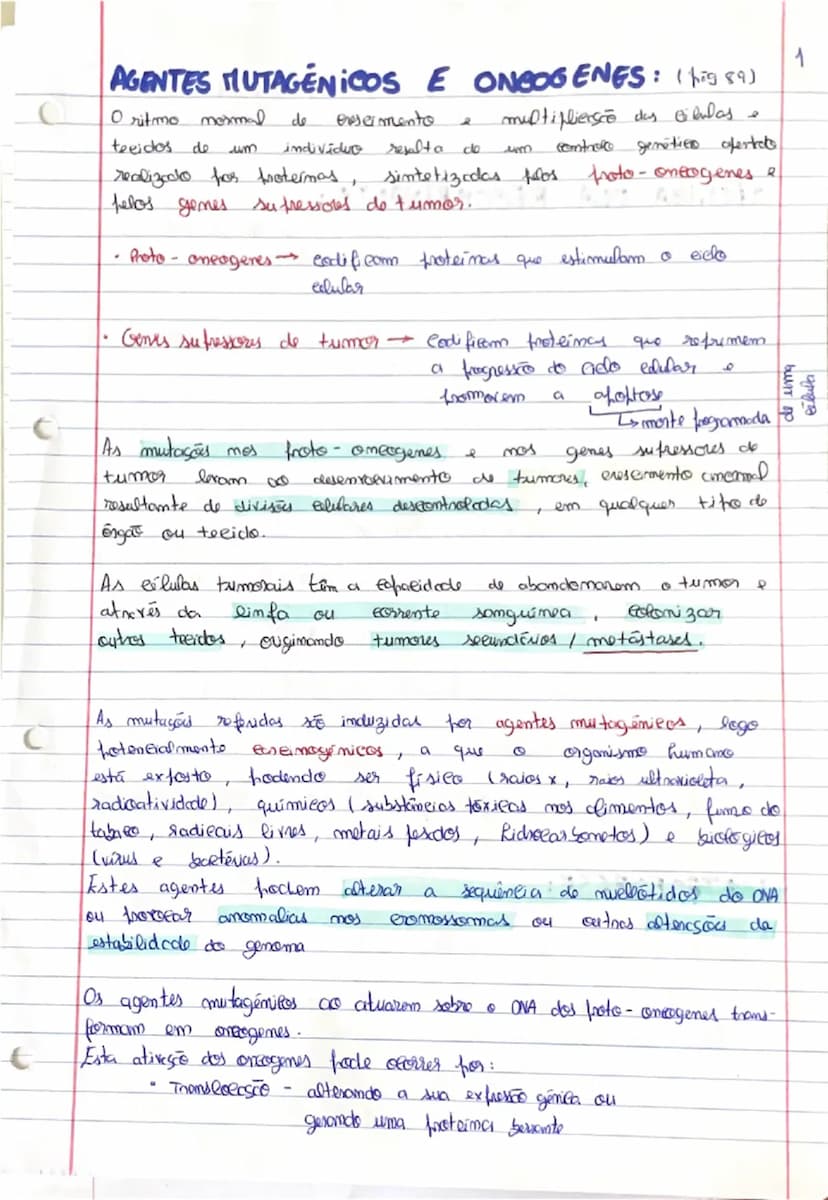 1
AGENTES MUTAGÉNICOS E ONCOGENES: (pág 89)
O ritmo normal de crescimento e multiplicação das células e
tecidos de um indivíduo resulta de um controlo genético apertado
realizado por proteínas, sintetizadas pelos proto-oncogenes e
pelos genes supressores de tumor.
• Proto-oncogenes → codificam proteínas que estimulam o ciclo
celular
• Genes supressores de tumor → codificam proteínas que reprimem
a progressão do ciclo celular e
promovem a apoptose
↳ morte programada
As mutações nos proto-oncogenes e nos genes supressores de
tumor levam ao desenvolvimento de tumores, crescimento anormal
resultante de divisões celulares descontroladas, em qualquer tipo de
órgão ou tecido.
As células tumorais têm a capacidade de abandonarem o tumor e
através da linfa ou corrente sanguínea, colonizar
outros tecidos, originando tumores secundários / metástases.
As mutações referidas são induzidas por agentes mutagénicos, logo
potencialmente carcinogénicos, a que o organismo humano
está exposto, podendo ser físico (raios x, raios ultravioleta,
radioatividade), químicos (substâncias tóxicas nos alimentos, fumo do
tabaco, radicais livres, metais pesados, hidrocarbonetos) e biológicos
(vírus e bactérias).
Estes agentes podem alterar a sequência de nucleótidos do DNA
ou provocar anomalias nos cromossomas ou outras alterações da
estabilidade do genoma
Os agentes mutagénicos ao atuarem sobre o DNA dos proto-oncogenes trans-
formam em oncogenes.
Esta ativação dos oncogenes pode ocorrer por:
• Translocação - alterando a sua expressão génica ou
gerando uma proteína